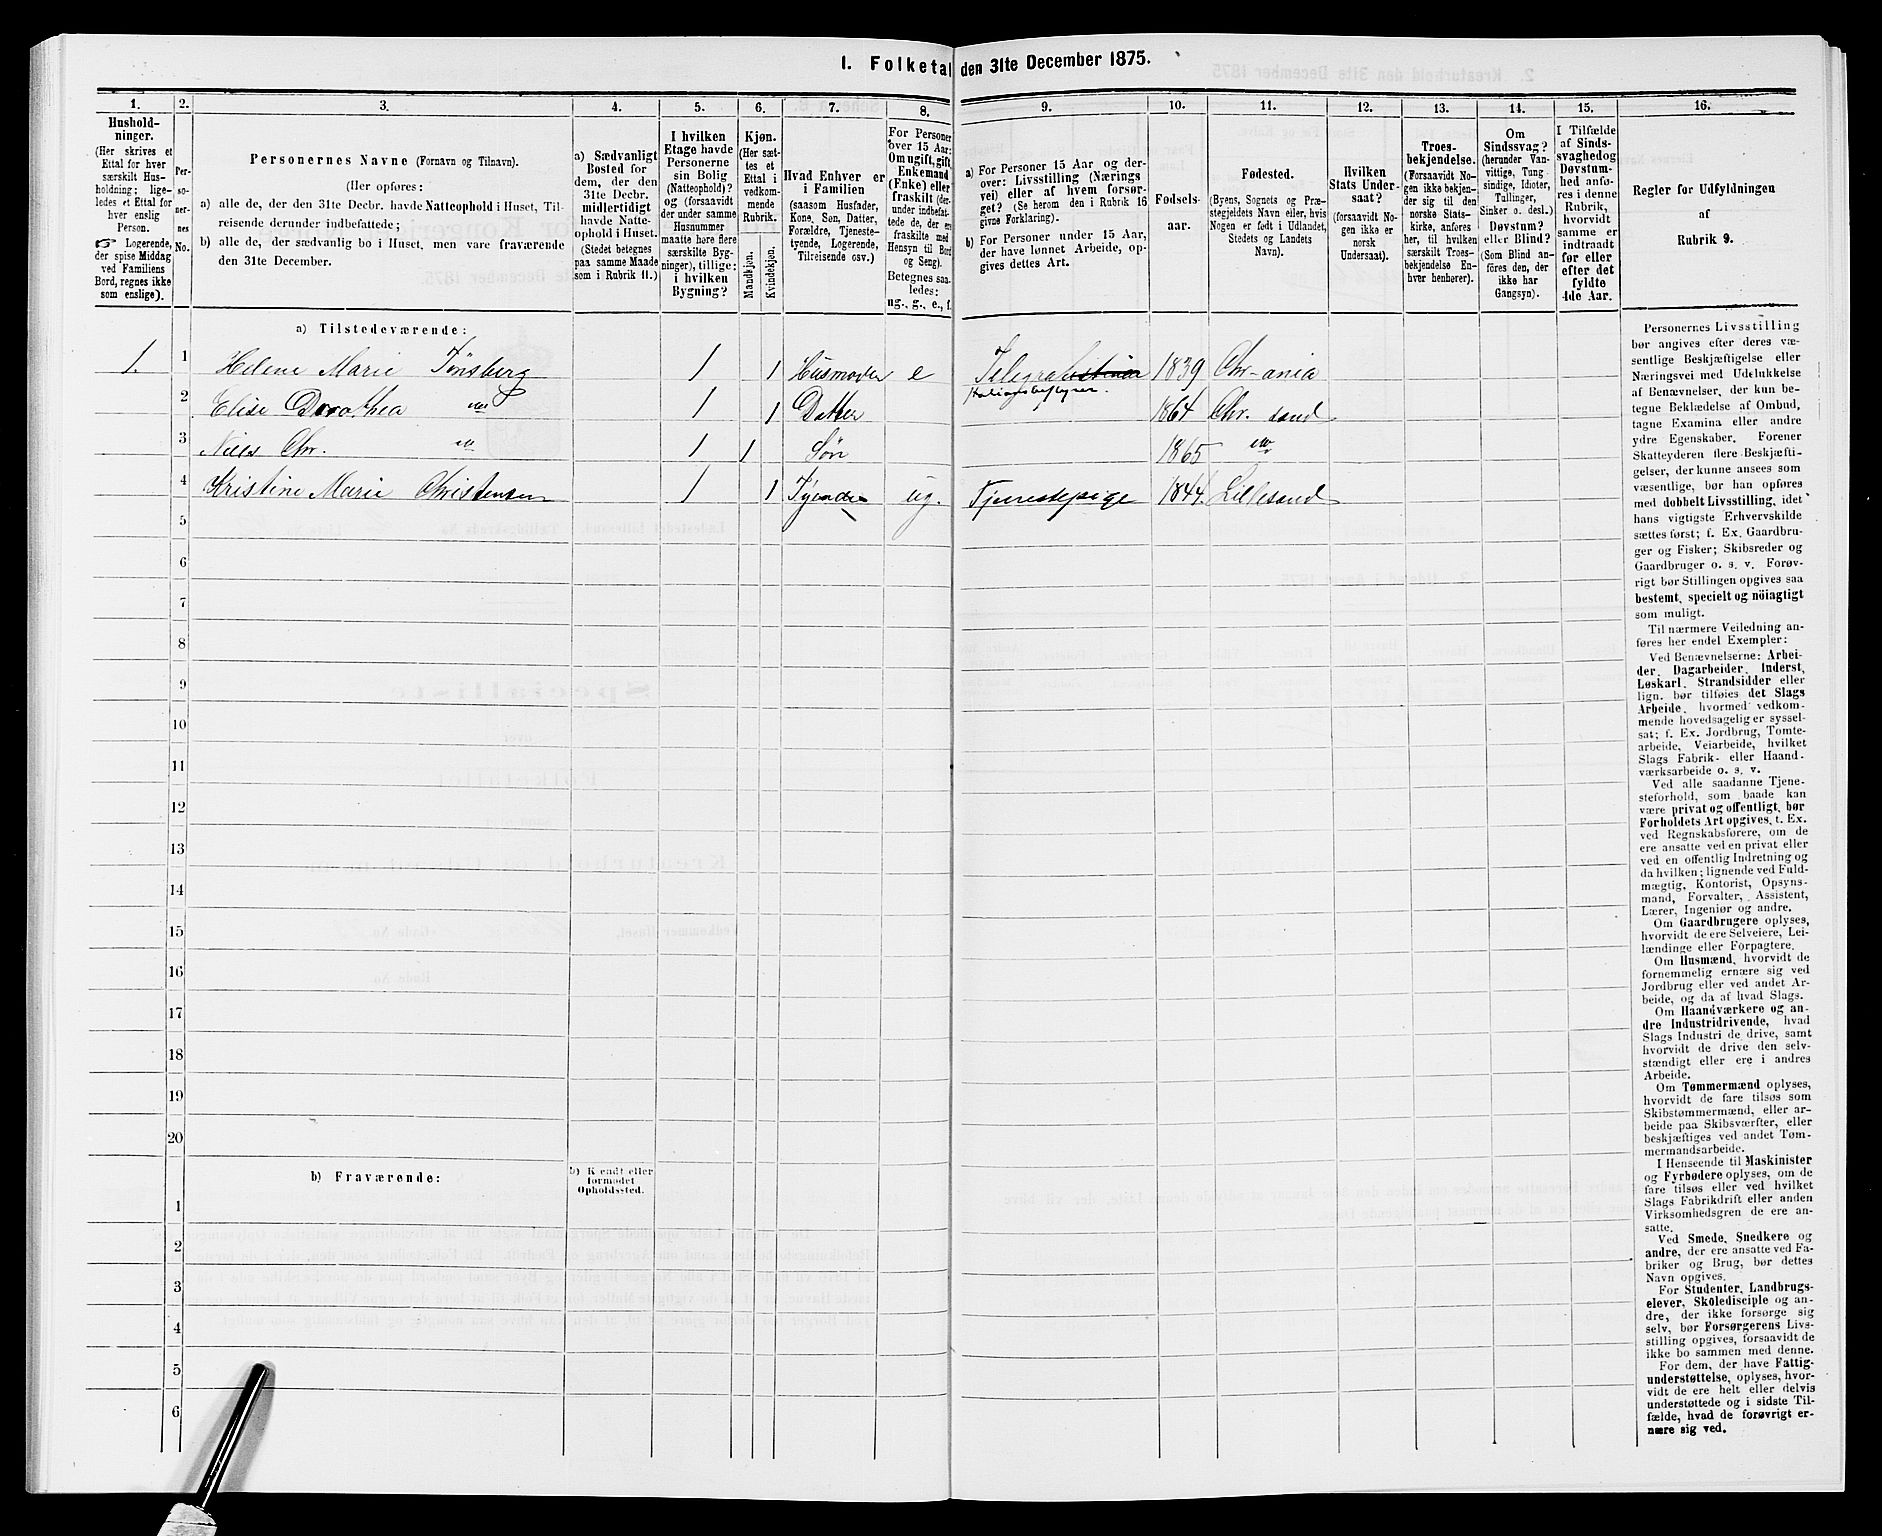 1. Folketal den 31te December 1875.
1. 2. 3. 4. 5. 6. 7. 8. 9. 10. 11. 12. 13. 14. 15. 16.
Hushold-
ninger.
(Her skrives et
Ettal for hver
særskilt Hus-
holdning; lige-
ledes et Ettal for
hver enslig
Person.
☞ Logerende,
der spise Middag
ved Familiens
Bord, regnes ikke
som enslige).
Per-
so-
ner-
nes
No.
Personernes Navne (Fornavn og Tilnavn).
(Her opføres:
a) alle de, der den 31te Decbr. havde Natteophold i Huset, Til-
reisende derunder indbefattede;
b) alle de, der sædvanlig bo i Huset, men vare fraværende
den 31te December.
a) Sædvanligt
Bosted for
dem, der den
31te Decbr.
midlertidigt
havde Natte-
ophold i Huset.
(Stedet betegnes
paa samme Maade
som i Rubrik 11.)
I hvilken
Etage havde
Personerne
sin Bolig
(Natteophold)?
og (forsaavidt
der under samme
Husnummer
maatte høre flere
særskilte Byg-
ninger), tillige:
i hvilken
Bygning?
Kjøn.
(Her sæt-
tes et
Ettal i
vedkom-
mende
Rubrik.
Mandkjøn.
Kvindekjøn.
Hvad Enhver er
i Familien
(saasom Husfader,
Kone, Søn, Datter,
Forældre, Tjeneste-
tyende, Logerende,
Tilreisende osv.)
For Personer
over 15 Aar:
Om ugift, gift,
Enkemand
(Enke) eller
fraskilt (der-
under indbefat-
tede de, der ere
fraskilte med
Hensyn til Bord
og Seng).
Betegnes saa-
ledes:
ug., g., e., f.
a) For Personer 15 Aar og der-
over: Livsstilling (Nærings
vei) eller af hvem forsør-
get? (Se herom den i Rubrik 16
givne Forklaring).
b) For Personer under 15 Aar,
der have lønnet Arbeide, op-
gives dettes Art.
Fødsels-
aar.
Fødested.
(Byens, Sognets og Præ-
stegjeldets Navn eller, hvis
Nogen er født i Udlandet,
Stedets og Landets
Navn).
Hvilken
Stats Under-
saat?
(forsaavidt No-
gen ikke er
norsk
Undersaat).
Troes-
bekjendelse.
(Forsaavidt No-
gen ikke bekjen-
der sig til den
norske Stats-
kirke, anføres
her, til hvilken
særskilt Troes-
bekjendelse En-
hver henhører).
Om
Sindssvag?
(herunder Van-
vittige, Tung
sindige, Idioter,
Tullinger,
Sinker o. desl.)
Døvstum?
eller Blind?
(Som Blind an-
føres den, der
ikke har
Gangsyn).
I Tilfælde
af Sinds-
svaghed og
Døvstum-
hed anfø-
res i denne
Rubrik,
hvorvidt
samme er
indtraadt
før eller
efter det
fyldte
4de Aar.
Regler for Udfyldningen
af
Rubrik 9.
a) Tilstedeværende:
1. 1 Helene Marie Tønsberg 1 1 Husmoder e Telegrafistinde 1839 Chr-ania
Stationsbestyrer
2 Elise Dorothea " 1 1 Datter 1864 Chr. sand
3 Niels Chr. " 1 1 Søn 1865 "
4 Kristine Marie Christensen 1 1 Tyende ug. Tjenestepige 1844 Lillesand
5
6
7
8
9
10
11
12
13
14
15
16
17
18
19
20
b) Fraværende:
b) Kjendt eller
formodet
Opholdssted.
1
2
3
4
5
6
Personernes Livsstilling
bør angives efter deres væ-
sentlige Beskjæftigelse eller
Næringsvei med Udelukkelse
af Benævnelser, der kun be-
tegne Beklædelse af Ombud,
tagne Examina eller andre
ydre Egenskaber. Forener
Skatteyderen flere Beskjæfti-
gelser, der kunne ansees som
væsentlige, bør han opføres
med dobbelt Livsstilling, idet
hans vigtigste Erhvervskilde
sættes først; f. Ex. Gaardbru-
ger og Fisker; Skibsreder og
Gaardbruger o. s. v. Forøv-
rigt bør Stillingen opgives saa
bestemt, specielt og nöiagtigt
som muligt.
Til nærmere Veiledning an-
føres her endel Exempler:
Ved Benævnelserne: Arbei-
der, Dagarbeider, Inderst,
Løskarl, Strandsidder eller
lign. bør tilføies det Slags
Arbeide, hvormed vedkom-
mende hovedsagelig er syssel-
sat; f. Ex. Jordbrug, Tomte-
arbeide, Veiarbeide, hvilket
Slags Fabrik- eller Haand-
værksarbeide o. s. v.
Ved alle saadanne Tjene-
steforhold, som baade kan
være privat og offentligt, bør
Forholdets Art opgives, t. Ex.
ved Regnskabsførere, om de
ere ansatte ved en privat eller
ved en offentlig Indretning og
da hvilken; lignende ved Fuld-
mægtig, Kontorist, Opsyns-
mand, Forvalter, Assistent,
Lærer, Ingeniør og andre.
Om Gaardbrugere oplyses,
hvorvidt de ere Selveiere, Lei-
lændinge eller Forpagtere.
Om Husmænd, hvorvidt de
fornemmelig ernære sig ved
Jordbrug eller ved andet Ar-
beide, og da af hvad Slags.
Om Haandværkere og an-
dre Industridrivende, hvad
Slags Industri de drive, samt
hvorvidt de drive den selv-
stændigt eller ere i andres
Arbeide.
Om Tømmermænd oplyses,
hvorvidt de fare tilsøs som
Skibstømmermænd, eller ar-
beide paa Skibsværfter, eller
beskjæftiges ved andet Tøm-
mermandsarbeide.
I Henseende til Maskinister
og Fyrbødere oplyses, om de
fare tilsøs eller ved hvilket
Slags Fabrikdrift eller anden
Virksomhedsgren de ere an-
satte.
Ved Smede, Snedkere og
andre, der ere ansatte ved Fa-
briker og Brug, bør dettes
Navn opgives.
For Studenter, Landbrugs-
elever, Skoledisciple og an-
dre, der ikke forsørge sig
selv, bør Forsørgerens Livs-
stilling opgives, forsaavidt de
ikke bo sammen med denne.
For dem, der have Fattig-
understøttelse, oplyses, hvor-
vidt de ere helt eller delvis
understøttede og i sidste Til-
fælde, hvad de forøvrigt er-
nære sig ved.